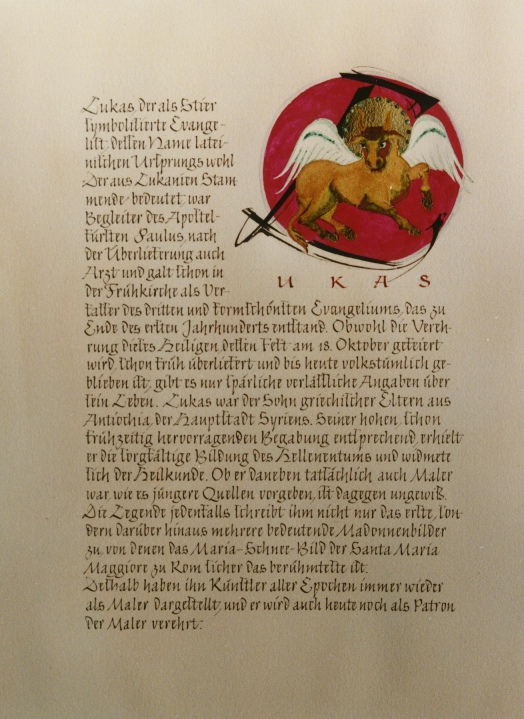 Lukas, der als Stier
symbolisierte Evange-
list, dessen Name latei-
nischen Ursprungs wohl
Der aus Lukanien Stam
mende bedeutet, war
Begleiter des Apostel-
fürsten Paulus, nach
der Überlieferung auch
Arzt und galt schon in
der Frühkirche als Ver-
UKAS
fasser des dritten und formschönsten Evangeliums, das zu
Ende des ersten Jahrhunderts entstand. Obwohl die Vereh-
rung dieses Heiligen, dessen Fest am 18. Oktober gefeiert
wird, schon früh überliefert und bis heute volkstümlich ge-
blieben ist, gibt es nur spärliche verläßliche Angaben über
sein Leben. Lukas war der Sohn griechischer Eltern aus
Antiochia, der Hauptstadt Syriens. Seiner hohen, schon
frühzeitig hervorragenden Begabung entsprechend, erhielt
er die sorgfältige Bildung des Hellenentums und widmete
sich der Heilkunde. Ob er daneben tatsächlich auch Maler
war, wie es jüngere Quellen vorgeben, ist dagegen ungewiß.
Die Legende jedenfalls schreibt ihm nicht nur das erste, son-
dern darüber hinaus mehrere bedeutende Madonnenbilder
zu, von denen das Maria-Schnee-Bild der Santa Maria
Maggiore zu Rom sicher das berühmteste ist.
Deshalb haben ihn Künstler aller Epochen immer wieder
als Maler dargestellt, und er wird auch heute noch als Patron
der Maler verehrt.